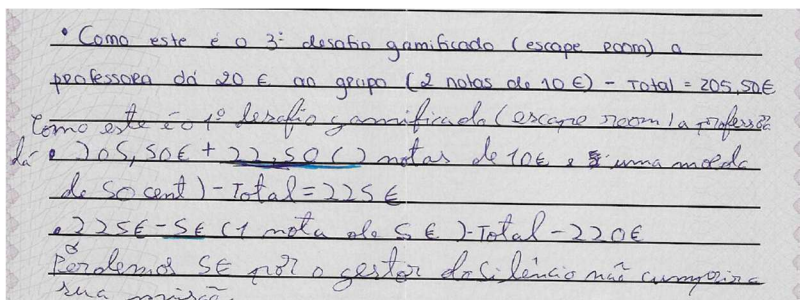 • Como este é o 3º desafio gamificado (escape room) a
professora dá 20 € ao grupo (2 notas de 10 €) - Total = 205,50€
Como este é o 1º desafio gamificado (escape room) a professora
dá • 205,50€ + 22,50 (2 notas de 10€ e uma moeda
de 50 cent) - Total = 225 €
• 225€ - 5€ (1 nota de 5 €) - Total - 220€
Perdemos 5€ por o gestor do silêncio não cumprir a
sua missão.